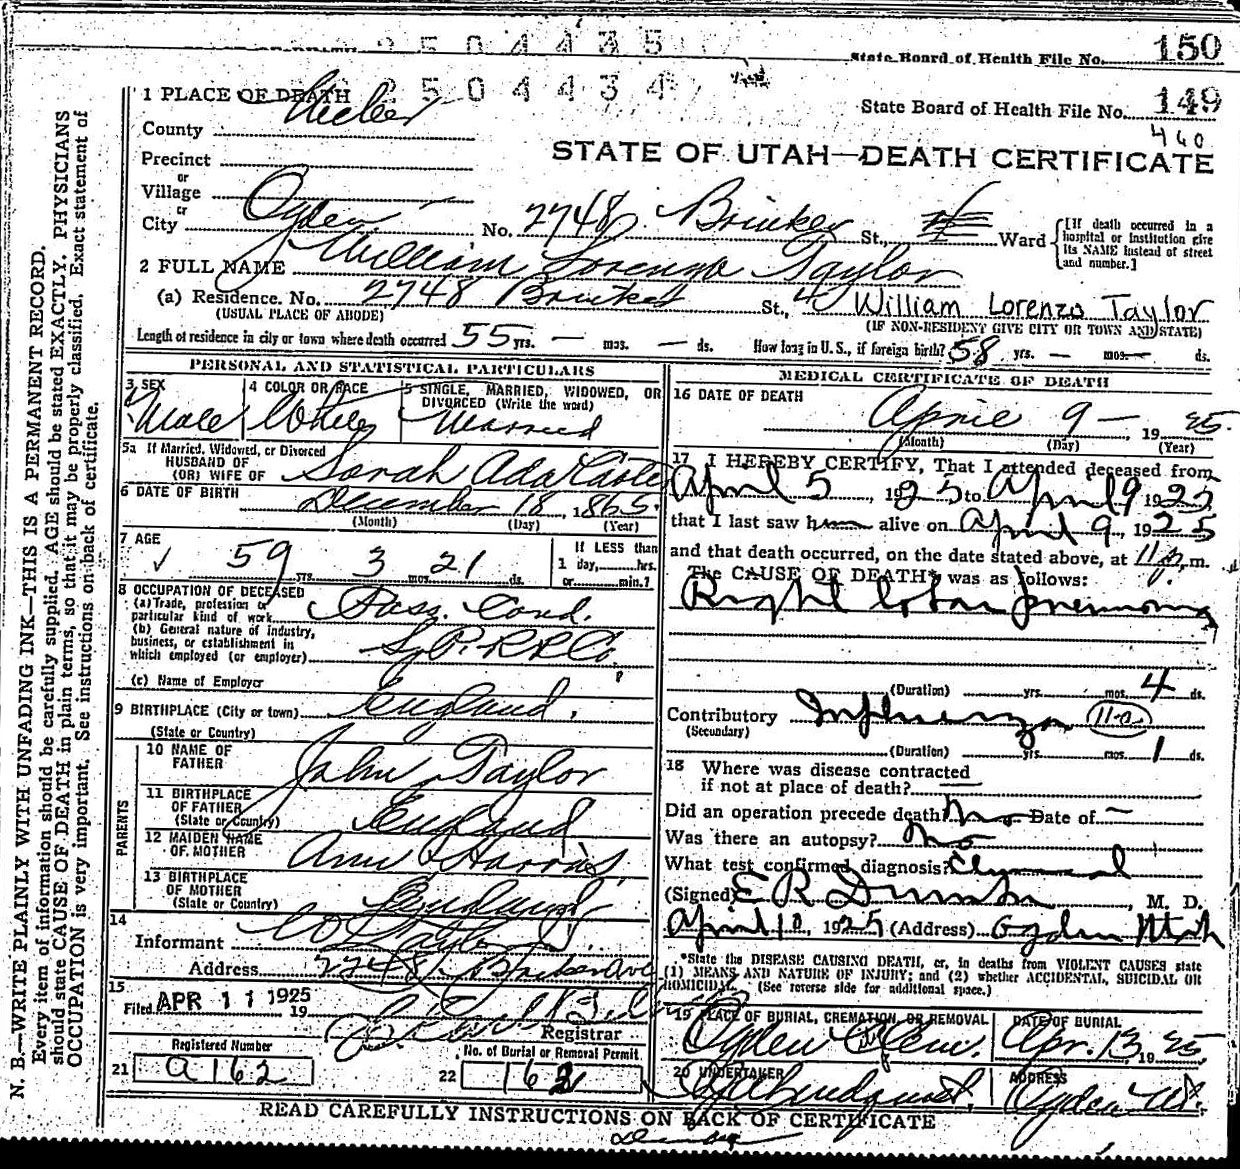 2504435
State Board of Health File No. 150
2504434
1 PLACE OF DEATH
State Board of Health File No. 149
460
County Weber
STATE OF UTAH—DEATH CERTIFICATE
Precinct
or
Village
or
City Ogden No. 2748 Brinker St., Ward
[If death occurred in a hospital or institution give its NAME instead of street and number.]
2 FULL NAME William Lorenzo Taylor
(a) Residence. No. 2748 Brinker St., 4 William Lorenzo Taylor
(USUAL PLACE OF ABODE) (IF NON-RESIDENT GIVE CITY OR TOWN AND STATE)
Length of residence in city or town where death occurred 55 yrs. — mos. — ds. How long in U.S., if foreign birth? 58 yrs. — mos. — ds.
PERSONAL AND STATISTICAL PARTICULARS
3 SEX Male
4 COLOR OR RACE White
5 SINGLE, MARRIED, WIDOWED, OR DIVORCED (Write the word) Married
5a If Married, Widowed, or Divorced
HUSBAND OF
(OR) WIFE OF Sarah Ada
6 DATE OF BIRTH December 18, 1865
(Month) (Day) (Year)
7 AGE 59 yrs. 3 mos. 21 ds.
If LESS than
1 day, hrs.
or min.?
8 OCCUPATION OF DECEASED
(a) Trade, profession or
particular kind of work Pass. Cond.
(b) General nature of industry,
business, or establishment in
which employed (or employer) S. P. R R Co.
(c) Name of Employer
9 BIRTHPLACE (City or town) England.
(State or Country)
PARENTS
10 NAME OF FATHER John Taylor
11 BIRTHPLACE OF FATHER (State or Country) England
12 MAIDEN NAME OF MOTHER Ann Harris
13 BIRTHPLACE OF MOTHER (State or Country) England
14
Informant W Taylor
Address 2748 Brinker Ave
15
Filed APR 11 1925 19
Registrar
Registered Number
21 a162
No. of Burial or Removal Permit
22 162
MEDICAL CERTIFICATE OF DEATH
16 DATE OF DEATH April 9 — , 19 25.
(Month) (Day) (Year)
17 I HEREBY CERTIFY, That I attended deceased from
April 5, 1925 to April 9 1925
that I last saw h alive on April 9, 1925
and that death occurred, on the date stated above, at 11 p.m.
The CAUSE OF DEATH* was as follows:
Right lobar pneumonia
(Duration) yrs. mos. 4 ds.
Contributory Influenza 11-a
(Secondary)
(Duration) yrs. mos. 1 ds.
18 Where was disease contracted
if not at place of death?
Did an operation precede death? no Date of —
Was there an autopsy? no
What test confirmed diagnosis? Clinical
(Signed) E R Dumke, M. D.
April 10, 1925 (Address) Ogden Utah
*State the DISEASE CAUSING DEATH, or, in deaths from VIOLENT CAUSES state
(1) MEANS AND NATURE OF INJURY; and (2) whether ACCIDENTAL, SUICIDAL OR
HOMICIDAL. (See reverse side for additional space.)
19 PLACE OF BURIAL, CREMATION, OR REMOVAL Ogden City Cem.
DATE OF BURIAL Apr. 13 1925
20 UNDERTAKER Lindquist,
ADDRESS Ogden Ut.
READ CAREFULLY INSTRUCTIONS ON BACK OF CERTIFICATE
N. B.—WRITE PLAINLY WITH UNFADING INK—THIS IS A PERMANENT RECORD.
Every item of information should be carefully supplied. AGE should be stated EXACTLY. PHYSICIANS
should state CAUSE OF DEATH in plain terms, so that it may be properly classified. Exact statement of
OCCUPATION is very important. See instructions on back of certificate.